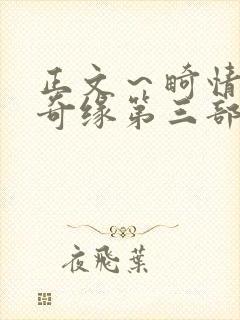 正文～畸情
奇缘第三部
夜飛葉